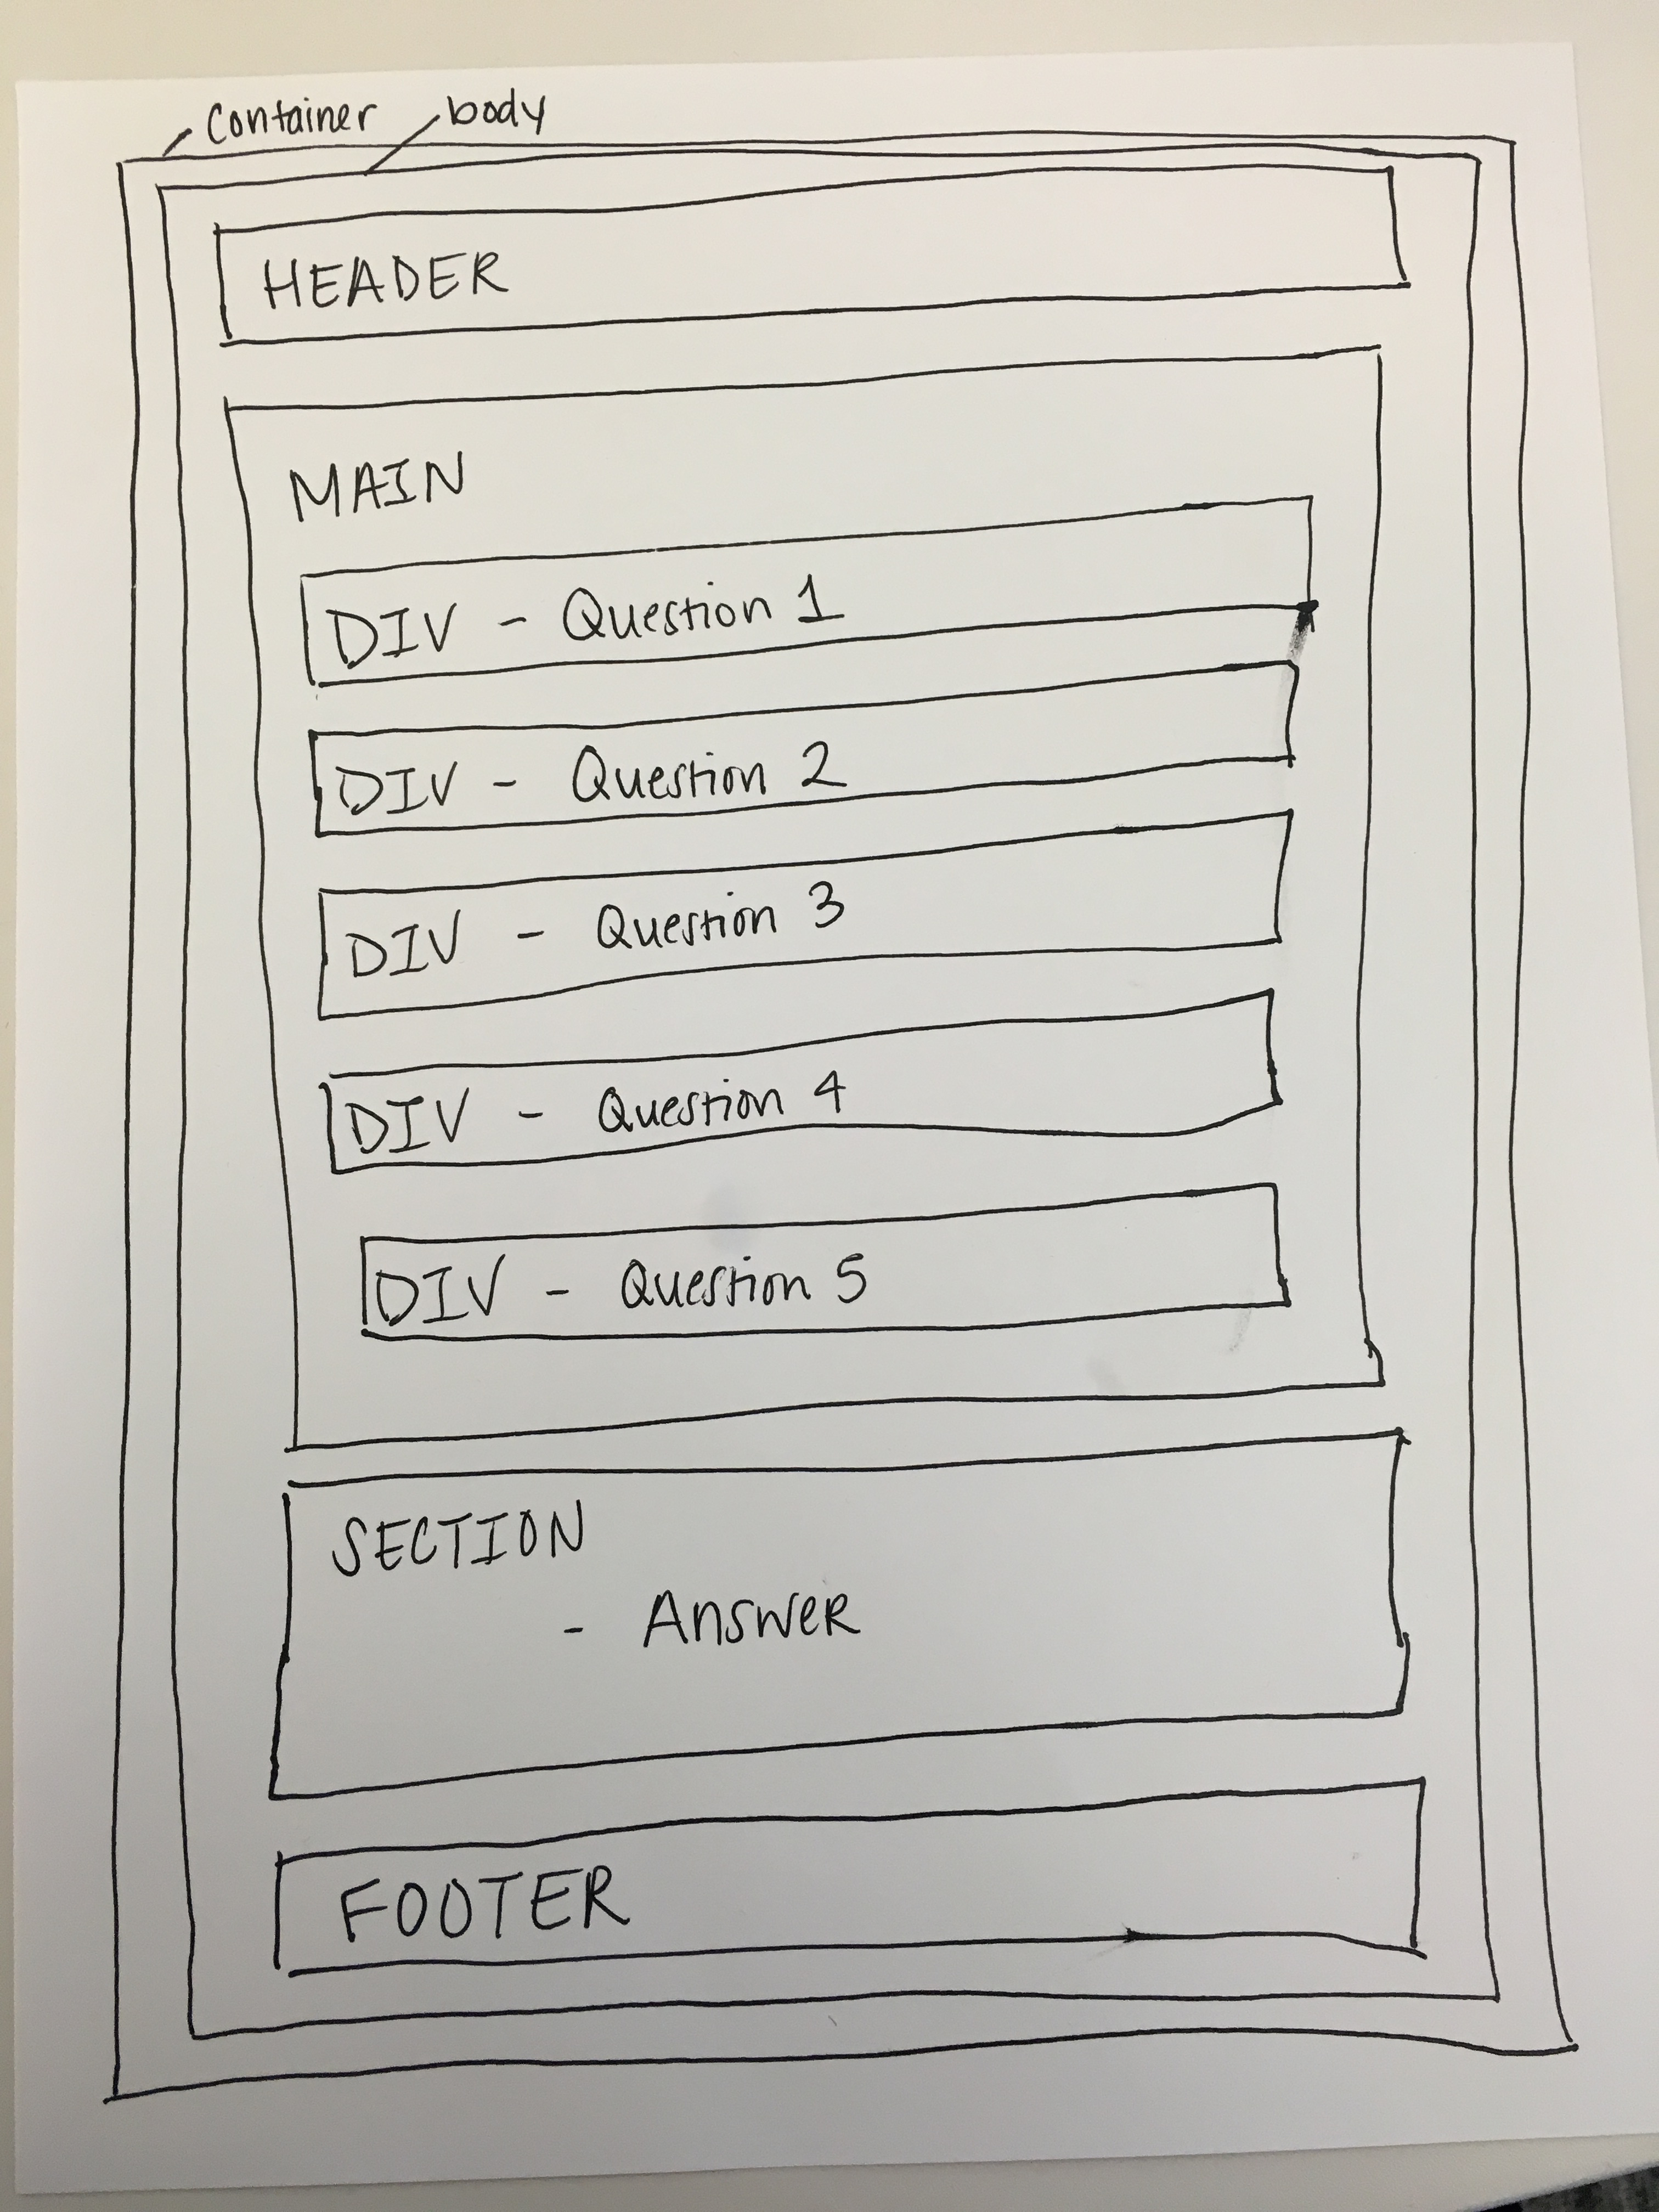 Container body
HEADER
MAIN
DIV - Question 1
DIV - Question 2
DIV - Question 3
DIV - Question 4
DIV - Question 5
SECTION
- Answer
FOOTER